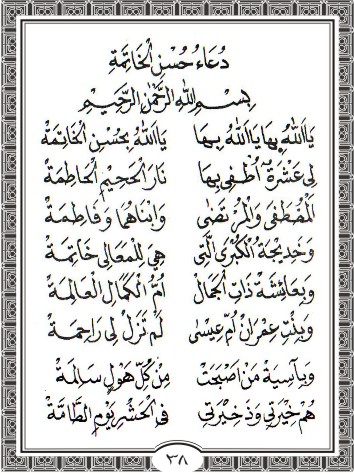 دُعَاءُ حُسْنِ الْخَاتِمَةِ
بِسْمِ اللهِ الرَّحْمٰنِ الرَّحِيْمِ
يَا اَللهُ بِهَا يَا اَللهُ بِهَا يَا اَللهُ بِحُسْنِ الْخَاتِمَةْ
لِى عَشْرَةٌ اُطْفِى بِهَا نَارَ الْجَحِيْمِ الْحَاطِمَةْ
اَلْمُصْطَفٰى وَالْمُرْتَضٰى وَابْنَاهُمَا وَفَاطِمَةْ
وَخَدِيْجَةُ الْكُبْرَى الَّتِى هِيَ لِلْمَعَالِى خَاتِمَةْ
وَبِعَائِشَةْ ذَاتِ الْجَمَالِ اُمُّ الْكَمَالِ الْعَالِمَةْ
وَبِبِنْتِ عِمْرَانَ اُمِّ عِيْسٰى لَمْ تَزَلْ لِى رَاحِمَةْ
وَبِآسِيَةْ مَنْ اَصْبَحَتْ مِنْ كُلِّ هَوْلٍ سَالِمَةْ
هُمْ خِيْرَتِى وَذَخِيْرَتِى فِى الْحَشْرِ يَوْمَ الطَّامَّةْ
٣٨